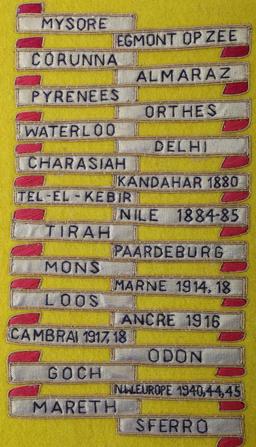 MYSORE
EGMONT OP ZEE
CORUNNA
ALMARAZ
PYRENEES
ORTHES
WATERLOO
DELHI
CHARASIAH
KANDAHAR 1880
TEL-EL-KEBIR
NILE 1884-85
TIRAH
PAARDEBURG
MONS
MARNE 1914, 18
LOOS
ANCRE 1916
CAMBRAI 1917, 18
ODON
GOCH
N.W.EUROPE 1940,44,45
MARETH
SFERRO